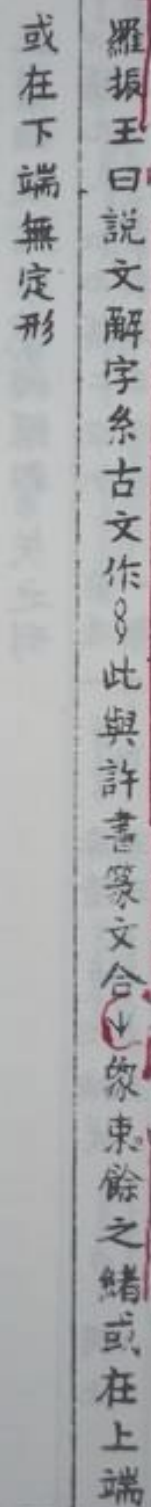 羅振玉曰説文解字糸古文作𢆯此與許書篆文合↓象束餘之緒或在上端
或在下端無定形